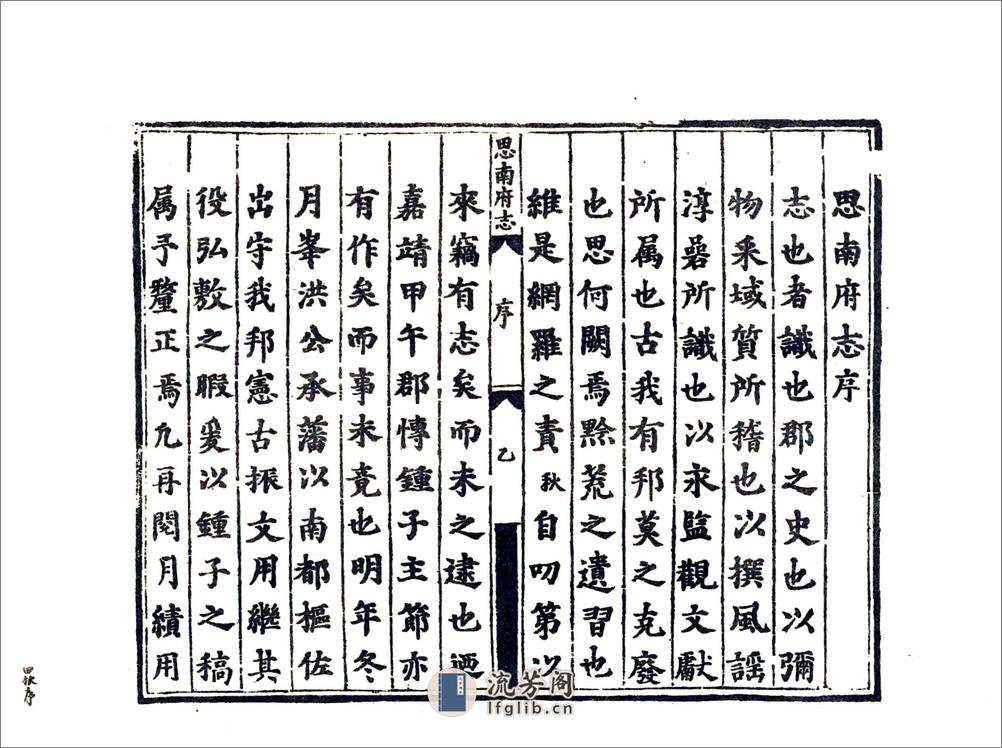 思南府志序
志也者識也郡之史也以彌
物釆域質所稽也以撰風謡
淳磊所識也以永監觀文獻
所属也古我有邦莫之克廢
也思何闕焉黔荒之遺習也
維是網羅之責秋自叨第以
思南府志
序
乙
來竊有志矣而未之逮也迺
嘉靖甲午郡慱鍾子主節亦
有作矣而事未竟也明年冬
月峯洪公承藩以南都樞佐
出守我邦憲古振文用継其
役弘敷之暇爰以鍾子之稿
属予釐正焉凢再閱月績用
田秋序
流芳阁
lfglib.cn